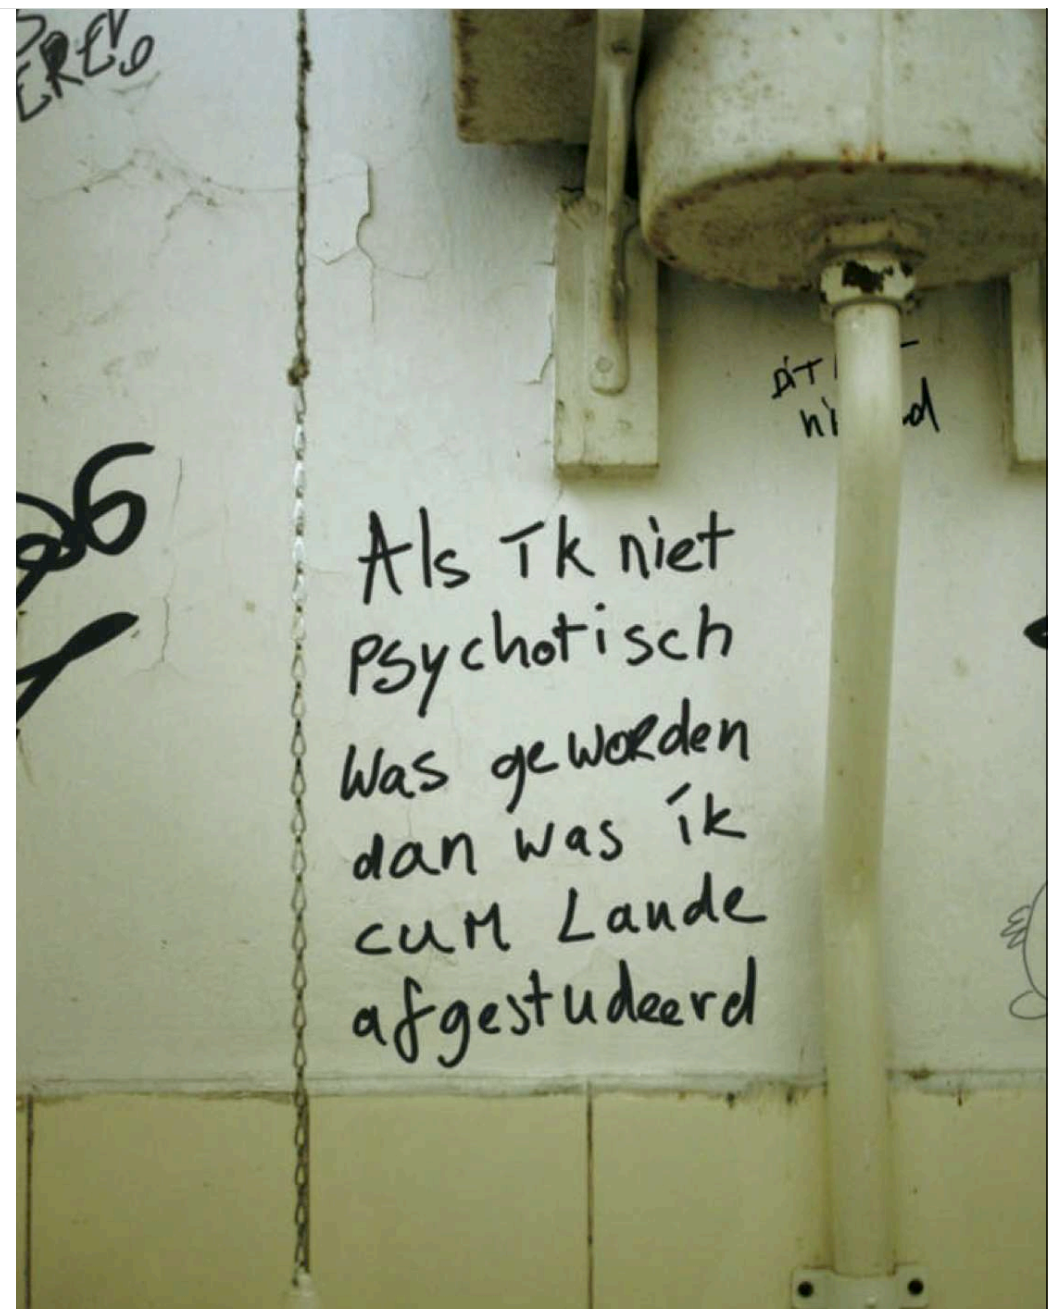 Als ik niet
psychotisch
was geworden
dan was ik
cum Laude
afgestudeerd